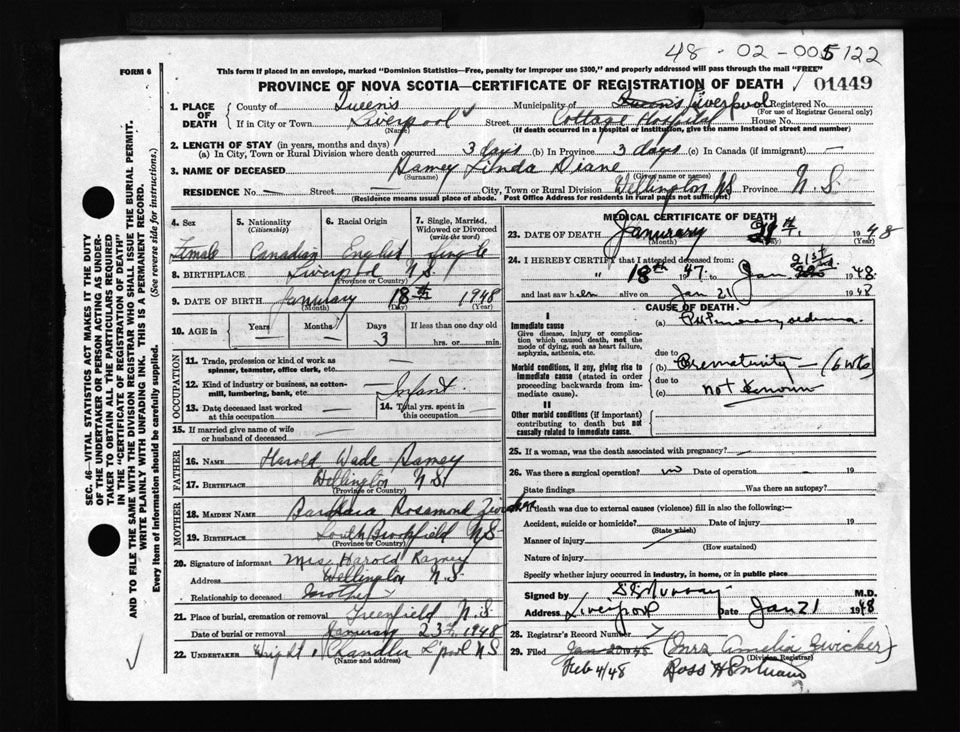 48 - 02 - 005122
FORM 6
This form if placed in an envelope, marked "Dominion Statistics—Free, penalty for improper use $300," and properly addressed will pass through the mail "FREE"
PROVINCE OF NOVA SCOTIA—CERTIFICATE OF REGISTRATION OF DEATH
01449
1. PLACE OF DEATH
County of Queens Municipality of Queens Liverpool Registered No.
(For use of Registrar General only)
If in City or Town Liverpool Street Cottage Hospital House No.
(Name) (If death occurred in a hospital or institution, give the name instead of street and number)
2. LENGTH OF STAY (in years, months and days)
(a) In City, Town or Rural Division where death occurred 3 days (b) In Province 3 days (c) In Canada (if immigrant) —
3. NAME OF DECEASED Ramey Linda Diane
(Surname) (Given name or names)
RESIDENCE No. Street — City, Town or Rural Division Wellington NS Province N.S.
(Residence means usual place of abode. Post Office Address for residents in rural parts not sufficient)
4. Sex
Female
5. Nationality
(Citizenship)
Canadian
6. Racial Origin
English
7. Single, Married, Widowed or Divorced
(write the word)
Single
8. BIRTHPLACE Liverpool N.S.
(Province or Country)
9. DATE OF BIRTH January 18th 1948
(Month) (Day) (Year)
10. AGE in
Years Months Days If less than one day old
— — 3 hrs. or min.
OCCUPATION
11. Trade, profession or kind of work as —
spinner, teamster, office clerk, etc.
12. Kind of industry or business, as cotton-
mill, lumbering, bank, etc. Infant
13. Date deceased last worked
at this occupation —
14. Total yrs. spent in
this occupation —
15. If married give name of wife
or husband of deceased —
FATHER
16. NAME Harold Wade Ramey
17. BIRTHPLACE Wellington N.S.
(Province or Country)
MOTHER
18. MAIDEN NAME Barbara Rosamond Zwicker
19. BIRTHPLACE South Brookfield N.S
(Province or Country)
20. Signature of informant Mrs. Harold Ramey
Address Wellington N.S.
Relationship to deceased Mother
21. Place of burial, cremation or removal Greenfield N.S.
Date of burial or removal January 23rd 1948
22. UNDERTAKER Wright & Chandler L'pool N S
(Name and address)
MEDICAL CERTIFICATE OF DEATH
23. DATE OF DEATH January 21st. 1948
(Month) (Day) (Year)
24. I HEREBY CERTIFY that I attended deceased from:
" 18th 1947. to Jan 21st 1948
and last saw h em alive on Jan 21 1948
CAUSE OF DEATH
I
Immediate cause
Give disease, injury or complica-
tion which caused death, not the
mode of dying, such as heart failure,
asphyxia, asthenia, etc.
(a) Pulmonary oedema.
due to
Morbid conditions, if any, giving rise to
immediate cause (stated in order
proceeding backwards from im-
mediate cause).
(b) Prematurity — (6 wks)
due to
(c) not known
II
Other morbid conditions (if important)
contributing to death but not
causally related to immediate cause.
25. If a woman, was the death associated with pregnancy? —
26. Was there a surgical operation? no Date of operation — 19
State findings Was there an autopsy?
27. If death was due to external causes (violence) fill in also the following:
Accident, suicide or homicide? Date of injury 19
(State which)
Manner of injury
(How sustained)
Nature of injury
Specify whether injury occurred in industry, in home, or in public place
Signed by Murray M.D.
Address Liverpool Date Jan 21 1948
28. Registrar's Record Number 7
29. Filed Jan 20 1948 (Mrs Amelia Zwicker)
(Division Registrar)
Feb 4/48 Ross
SEC. 46—VITAL STATISTICS ACT MAKES IT THE DUTY
OF THE UNDERTAKER OR PERSON ACTING AS UNDER-
TAKER TO OBTAIN ALL THE PARTICULARS REQUIRED
IN THE "CERTIFICATE OF REGISTRATION OF DEATH"
AND TO FILE THE SAME WITH THE DIVISION REGISTRAR WHO SHALL ISSUE THE BURIAL PERMIT.
WRITE PLAINLY WITH UNFADING INK. THIS IS A PERMANENT RECORD.
Every item of information should be carefully supplied. (See reverse side for instructions.)